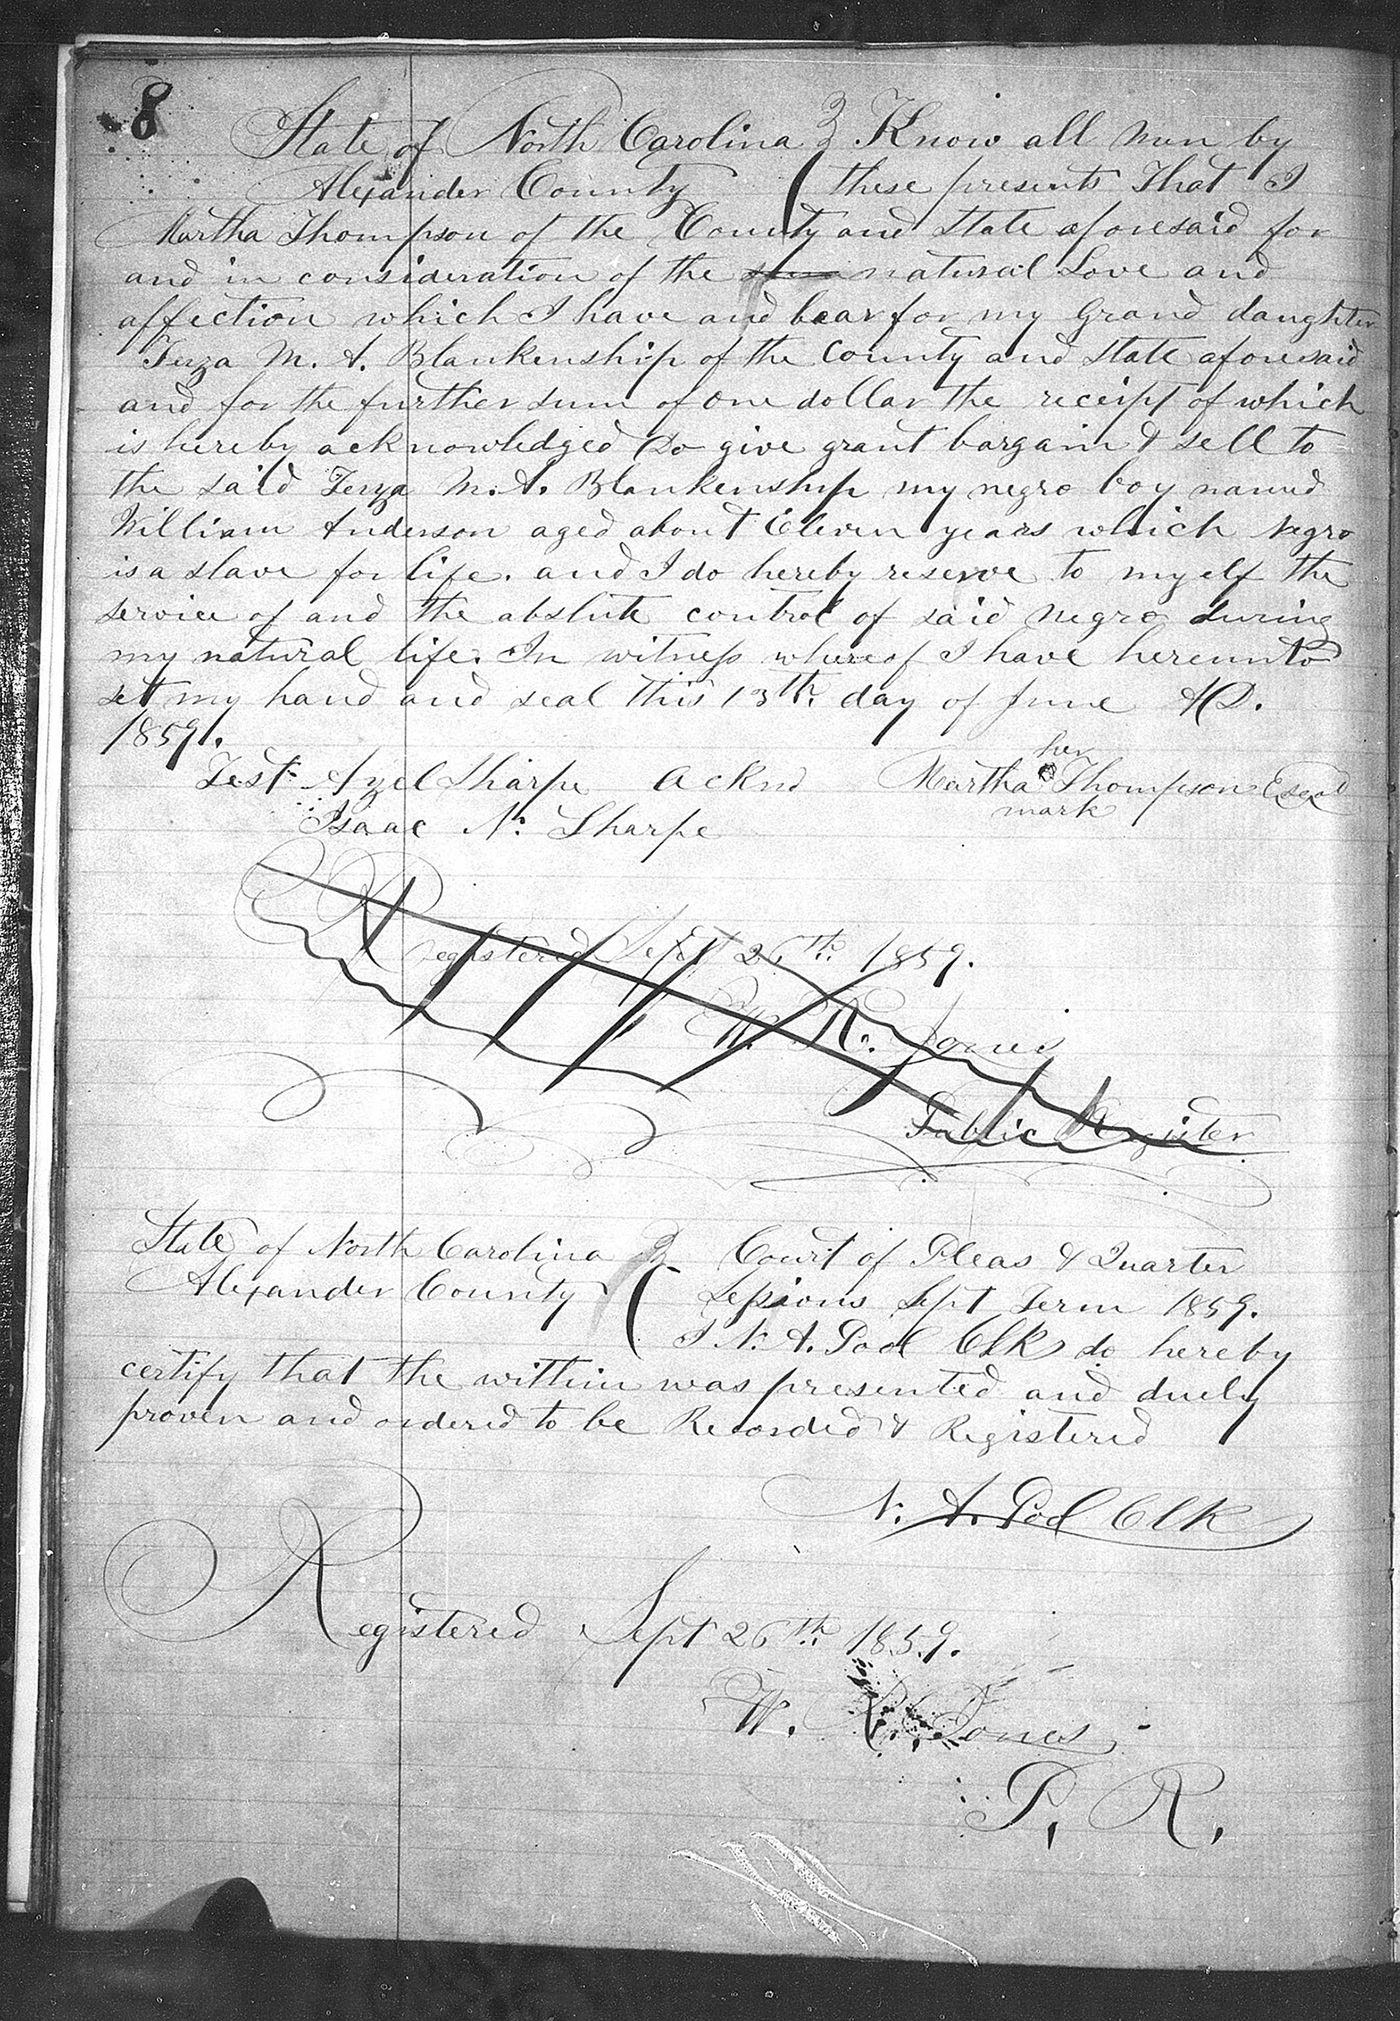 8
State of North Carolina } Know all men by
Alexander County ( these presents That I
Martha Thompson of the County and State aforesaid for
and in consideration of the natural Love and
affection which I have and bear for my Grand daughter
Terza M. A. Blankenship of the County and State aforesaid
and for the further sum of one dollar the receipt of which
is hereby acknowledged Do give grant bargain & sell to
the said Terza M. A. Blankenship my negro boy named
William Anderson aged about Eleven years which Negro
is a slave for life. and I do hereby reserve to myself the
service of and the abslute control of said negro during
my natural life. In witness whereof I have hereunto
set my hand and seal this 13th day of June AD.
1859.
Test Azel Sharpe Acknd Martha her Thompson Seal
mark
Isaac N. Sharpe
Registered Sept 26th 1859.
W. R. Jones
Public Register
State of North Carolina } Court of Pleas & Quarter
Alexander County ( Sessions Sept Term 1859.
I N. A. Pool Clk do hereby
certify that the within was presented and duely
proven and ordered to be Recorded & Registered
N. A. Pool Clk
Registered Sept 26th 1859.
W. R. Jones
P. R.